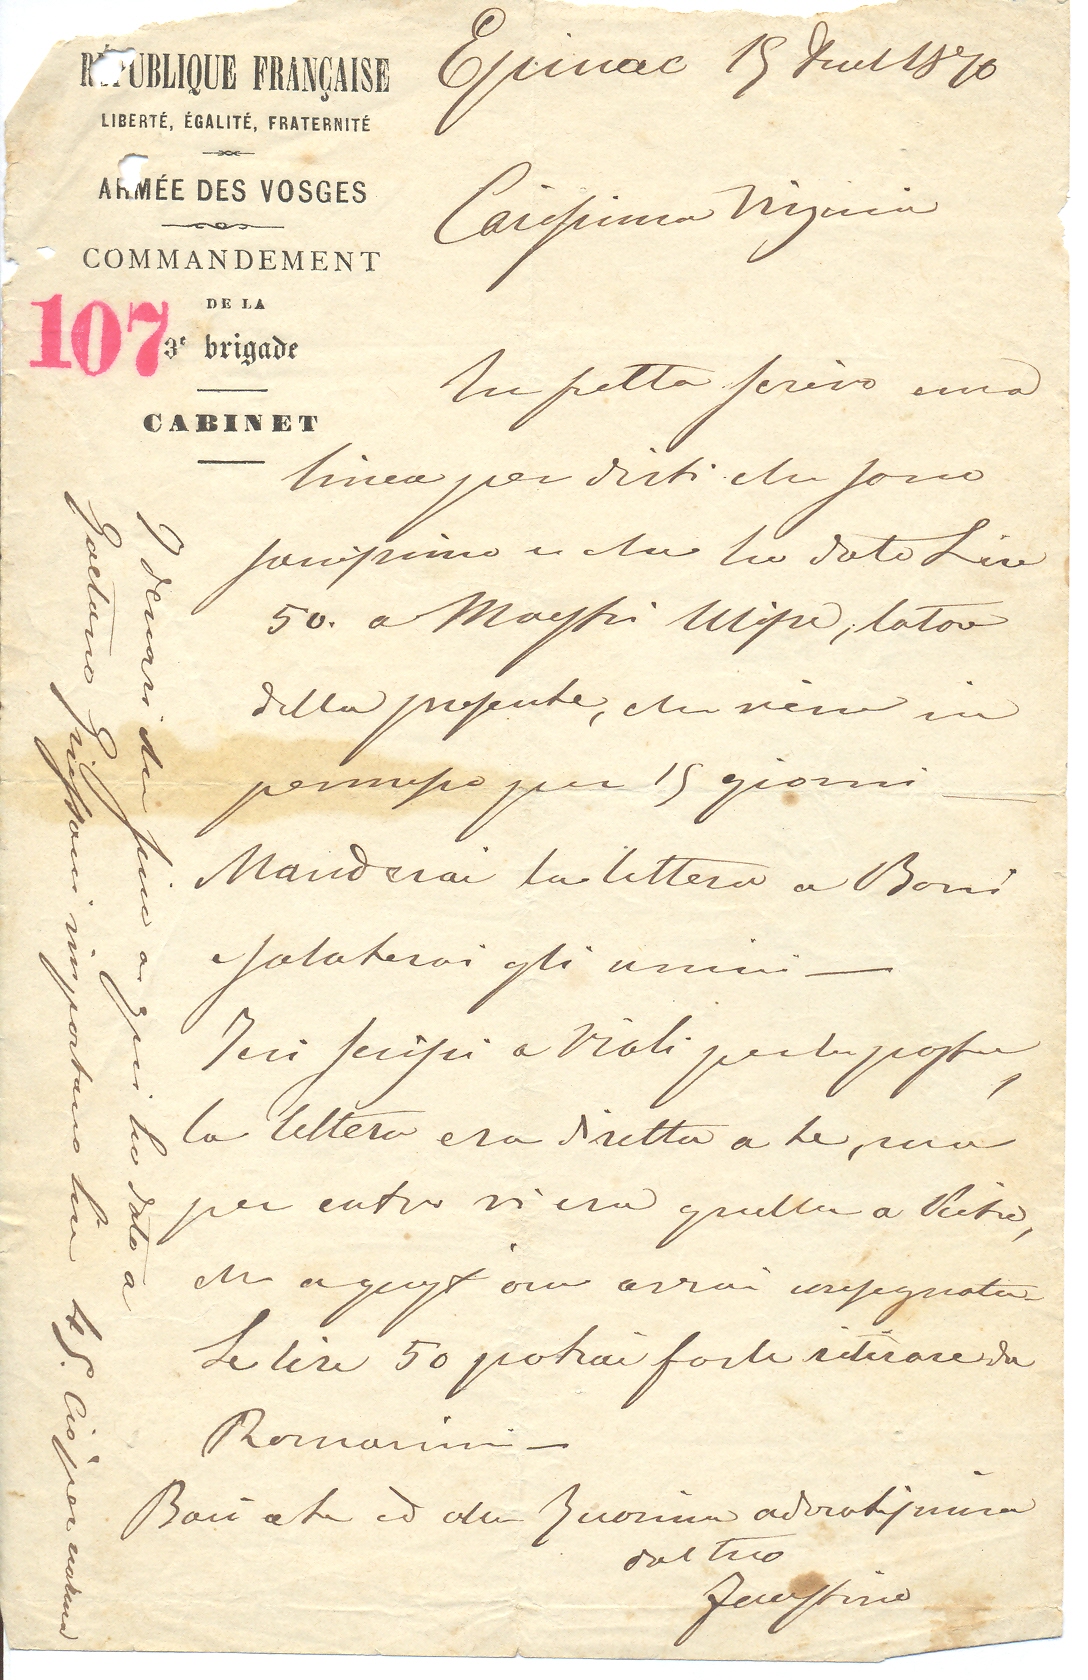 RÉPUBLIQUE FRANÇAISE
LIBERTÉ, ÉGALITÉ, FRATERNITÉ
ARMÉE DES VOSGES
COMMANDEMENT
DE LA
3e brigade
CABINET
107
Epinac 15 1870
Carissima Virginia
In fretta scrivo una
linea per dirti che sono
sanissimo e che ho dato Lire
50. a Maestri Ulisse, lator
della presente, che viene in
permesso per 15 giorni —
Manderai la lettera a Boni
e saluterai gli amici —
Jeri scrissi a Viali per la posta,
la lettera era diretta a te, ma
per entro vi era quella a
che a quest'ora avrai consegnata
Le lire 50 potrai farle ritirare da
Romanini —
Baci a te ed alla adoratissima
dal tuo
Faustino
I denari che fino a qui ho dato a
Gaetano Griffoni importano Lire 45. Ciò per norma